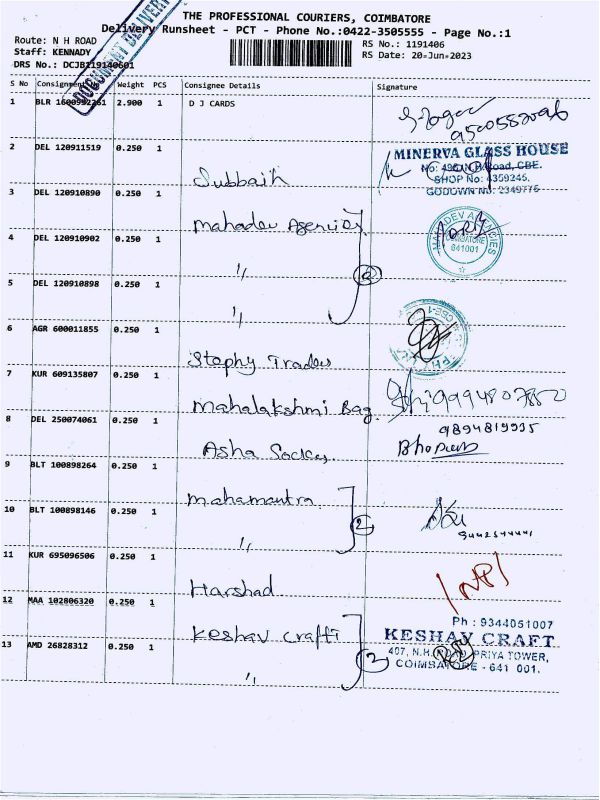 THE PROFESSIONAL COURIERS, COIMBATORE
Delivery Runsheet - PCT - Phone No.:0422-3505555 - Page No.:1
Route: N H ROAD
Staff: KENNADY
DRS No.: DCJB119140601
RS No.: 1191406
RS Date: 20-Jun-2023
DOCUMENT DELIVERY
S No Consignment Weight PCS Consignee Details Signature
1 BLR 1600992261 2.900 1 D J CARDS
9500552096
2 DEL 120911519 0.250 1
Subbaih
MINERVA GLASS HOUSE
Road, CBE.
SHOP No: 4359245,
GODOWN NO: 2349775
3 DEL 120910890 0.250 1
Mahadev Agencies
4 DEL 120910902 0.250 1
〃
MAHADEV AGENCIES
COIMBATORE
641001
5 DEL 120910898 0.250 1
〃
6 AGR 600011855 0.250 1
Stephy Traders
7 KUR 609135807 0.250 1
Mahalakshmi Bag
9994807850
8 DEL 250074061 0.250 1
Asha Socks
9894819935
9 BLT 100898264 0.250 1
Mahamantra
10 BLT 100898146 0.250 1
〃
2
11 KUR 695096506 0.250 1
Harshad
12 MAA 102806320 0.250 1
Keshav Crafti
13 AMD 26828312 0.250 1
〃
2
Ph : 9344051007
KESHAV CRAFT
407, N.H. ROAD, PRIYA TOWER,
COIMBATORE - 641 001.